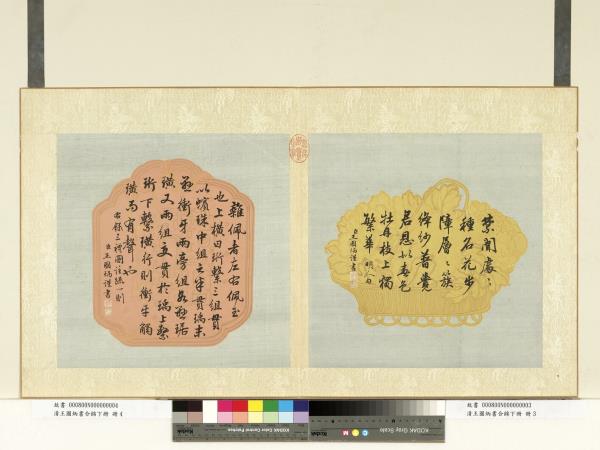 禁闈處々
種名花步
障層々簇
絳紗普覺
君恩似春色
牡丹枝上獨
繁華 明人句
臣王圖炳謹書
雜佩者左右佩玉
也上橫曰珩繫三組貫
以蠙珠中組之半貫瑀末
懸衝牙兩旁組各懸琚
璜又兩組交貫於瑀上繫
珩下繫璜行則衝牙觸
璜而有聲也
右錄三禮圖注疏一則
臣王圖炳謹書
故書 000800N000000004
清王圖炳書合錦下冊 冊4
故書 000800N000000003
清王圖炳書合錦下冊 冊3
KODAK Color Control Patches
KODAK Gray Scale